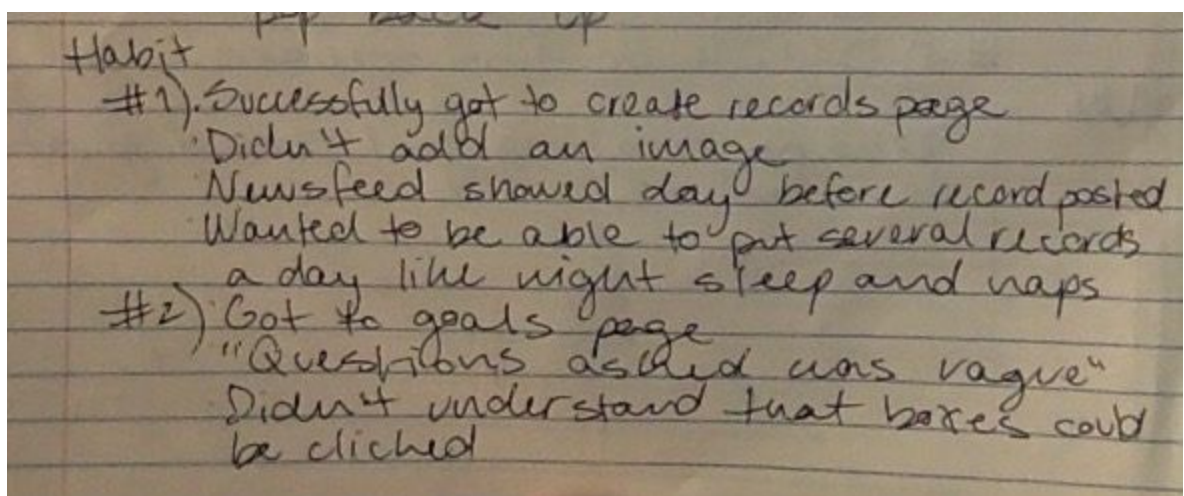 pop back up
Habit
#1). Successfully got to create records page
Didn't add an image
Newsfeed showed day before record posted
Wanted to be able to put several records
a day like night sleep and naps
#2) Got to goals page
"Questions asked was vague"
Didn't understand that boxes could
be clicked